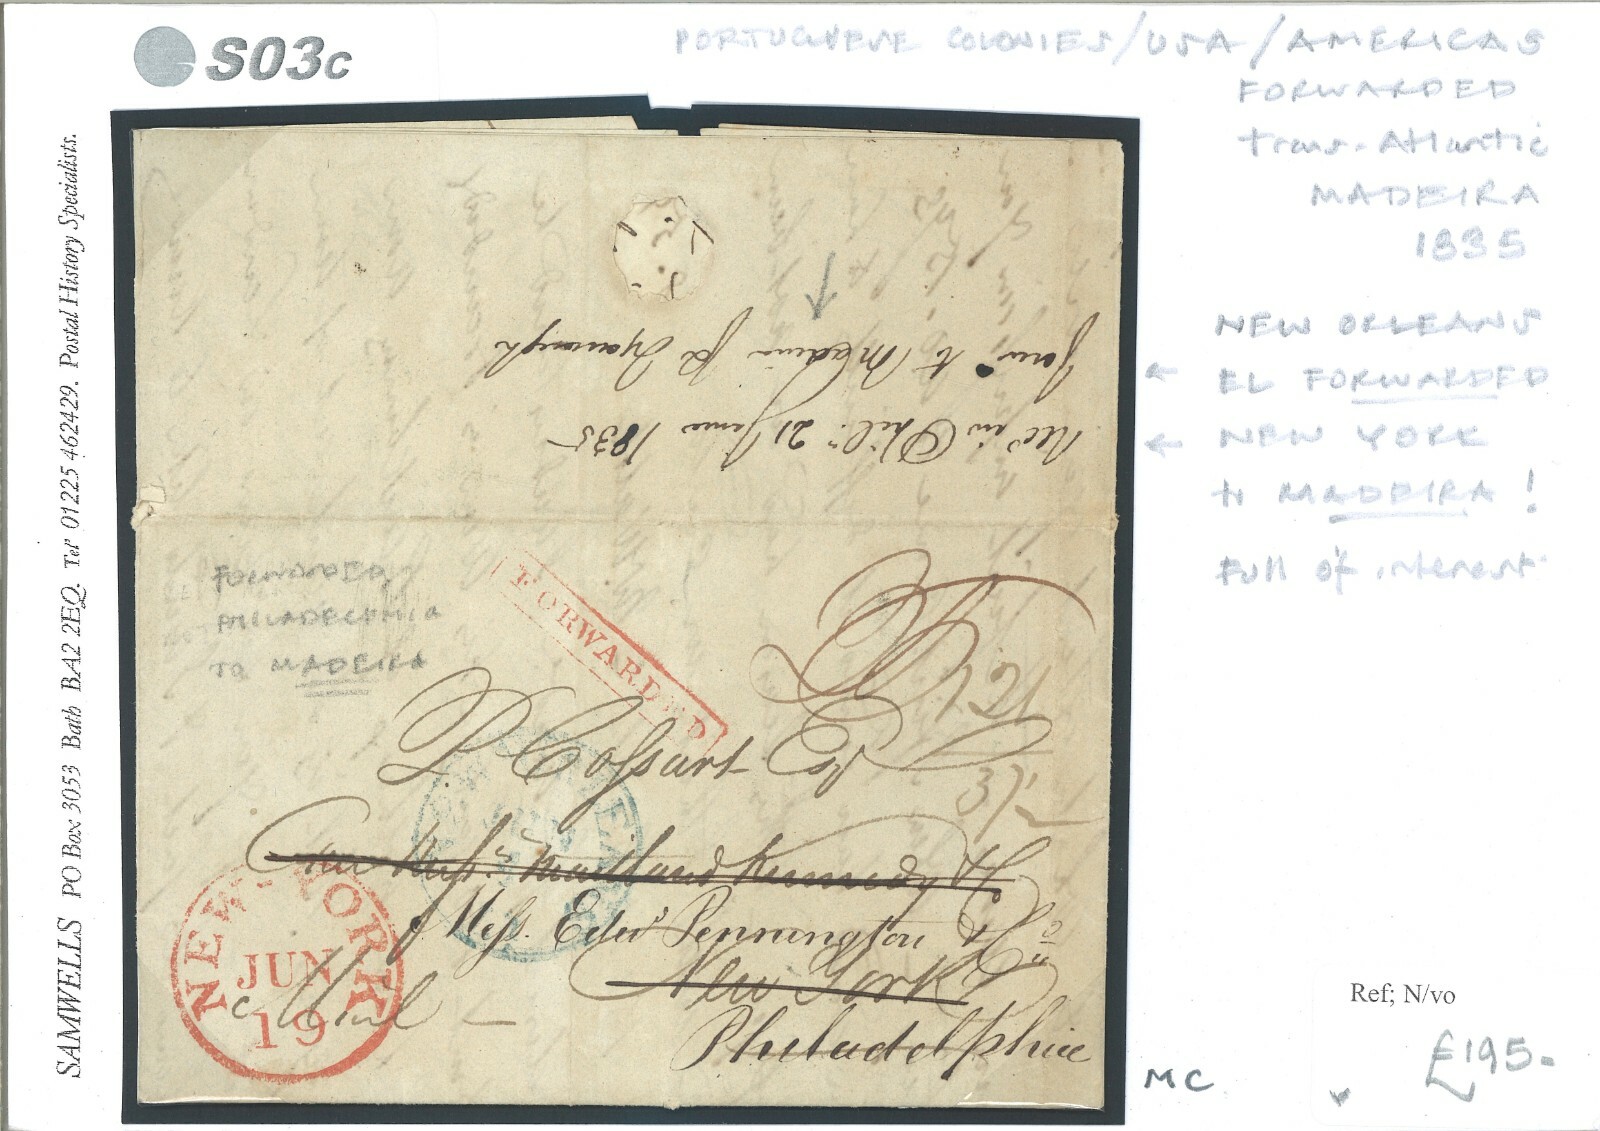 S03c
PORTUGUESE COLONIES/USA/AMERICAS
FORWARDED
trans-Atlantic
MADEIRA
1835
NEW ORLEANS
← EL FORWARDED
← NEW YORK
to MADEIRA!
Full of interest
SAMWELLS PO Box 3053 Bath BA2 2EQ. Tel 01225 462429. Postal History Specialists.
Recd in Phila. 21 June 1835
forwd to Madeira p
FORWARDED
PHILADELPHIA
TO MADEIRA
FORWARDED
P Cossart Esqr
Care Messrs Maitland Kennedy & Co
Mess. Edwd Pennington & Co
New York
Philadelphia
NEW-YORK
JUN
19
Ref; N/vo
£195-
MC